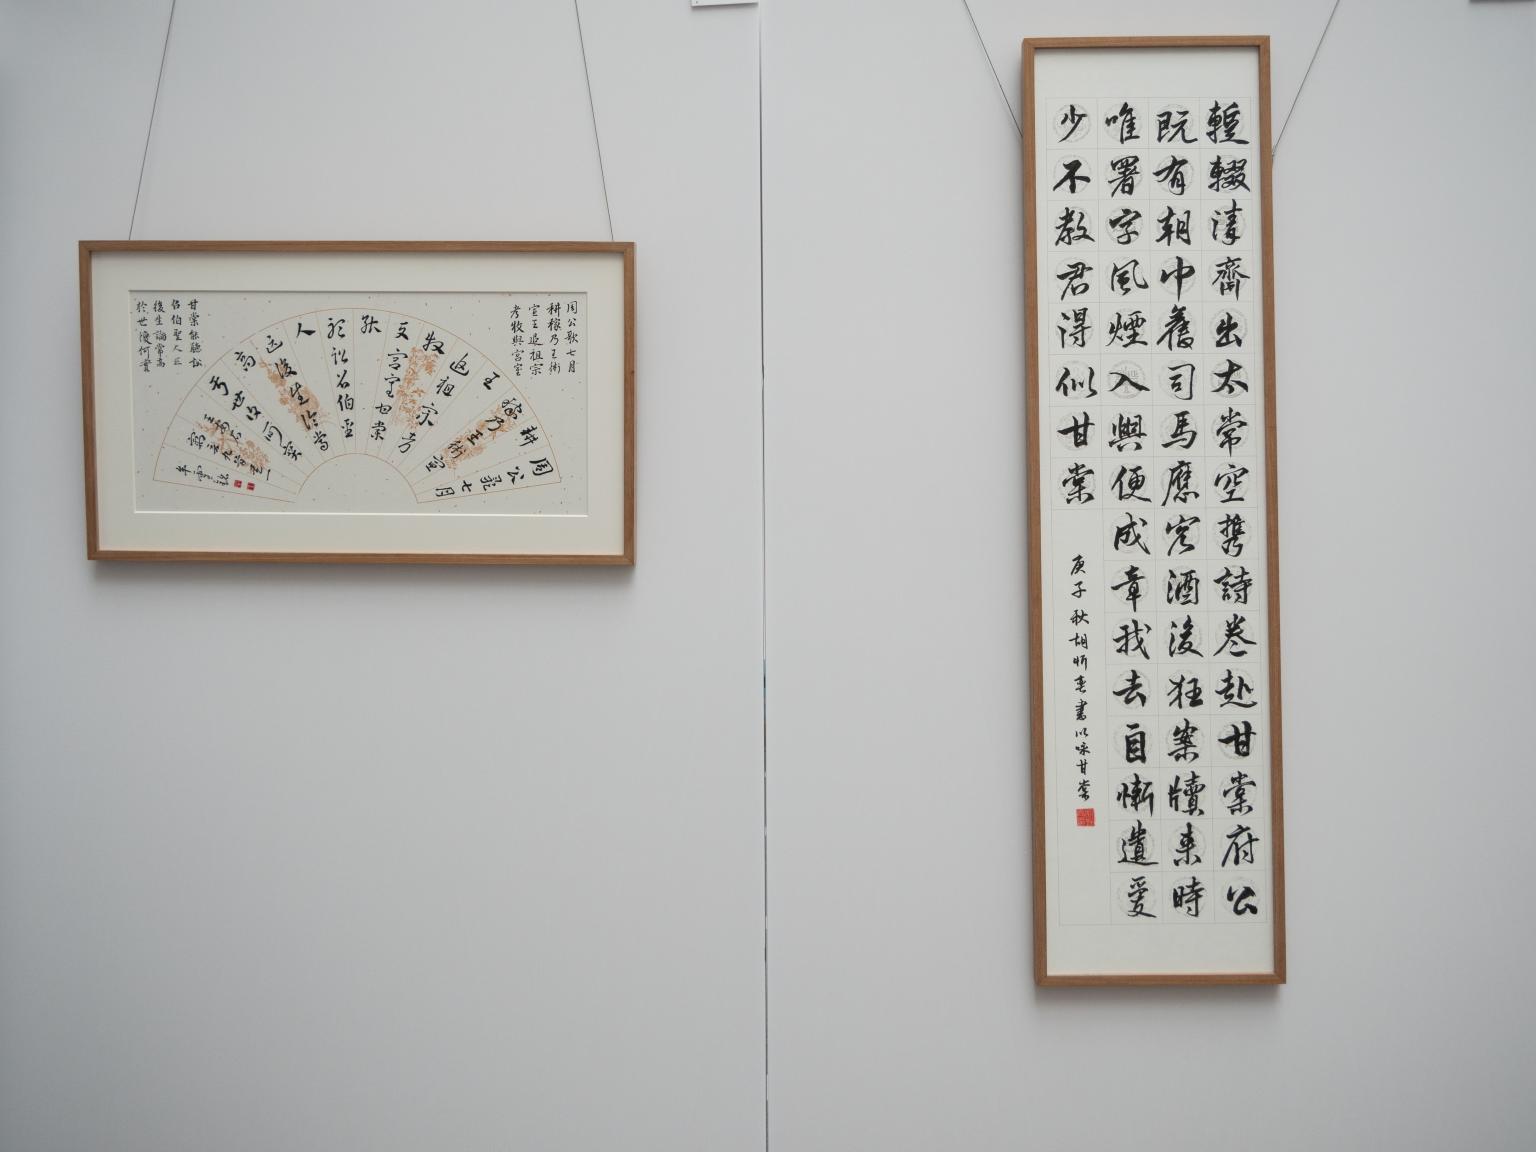 周公歌七月
耕稼乃王術
宣王追祖宗
考牧與宮室
甘棠能聽訟
召伯聖人匹
後生論常高
於世復何實
周公歌七月
耕
稼乃王術宣
王
追祖宗考
牧
与宮室甘棠
能
聽訟召伯聖
人
匹後生論常
高
于世復何實
王安石
輕輟清齋出太常空攜詩卷赴甘棠府公
既有朝中舊司馬應容酒後狂案牘來時
唯署字風煙入興便成章我去自慚遺愛
少不教君得似甘棠
庚子秋胡書以咏甘棠